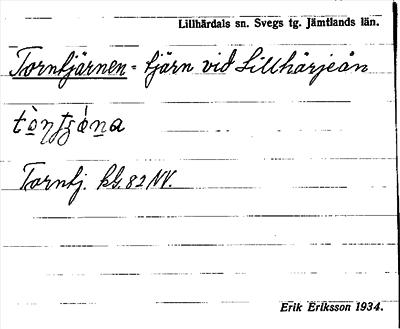 Lillhärdals sn. Svegs tg. Jämtlands län.
Torntjärnen = tjärn vid Lillhärjeån
Torntj. kbl. 82 NV.
Erik Eriksson 1934.